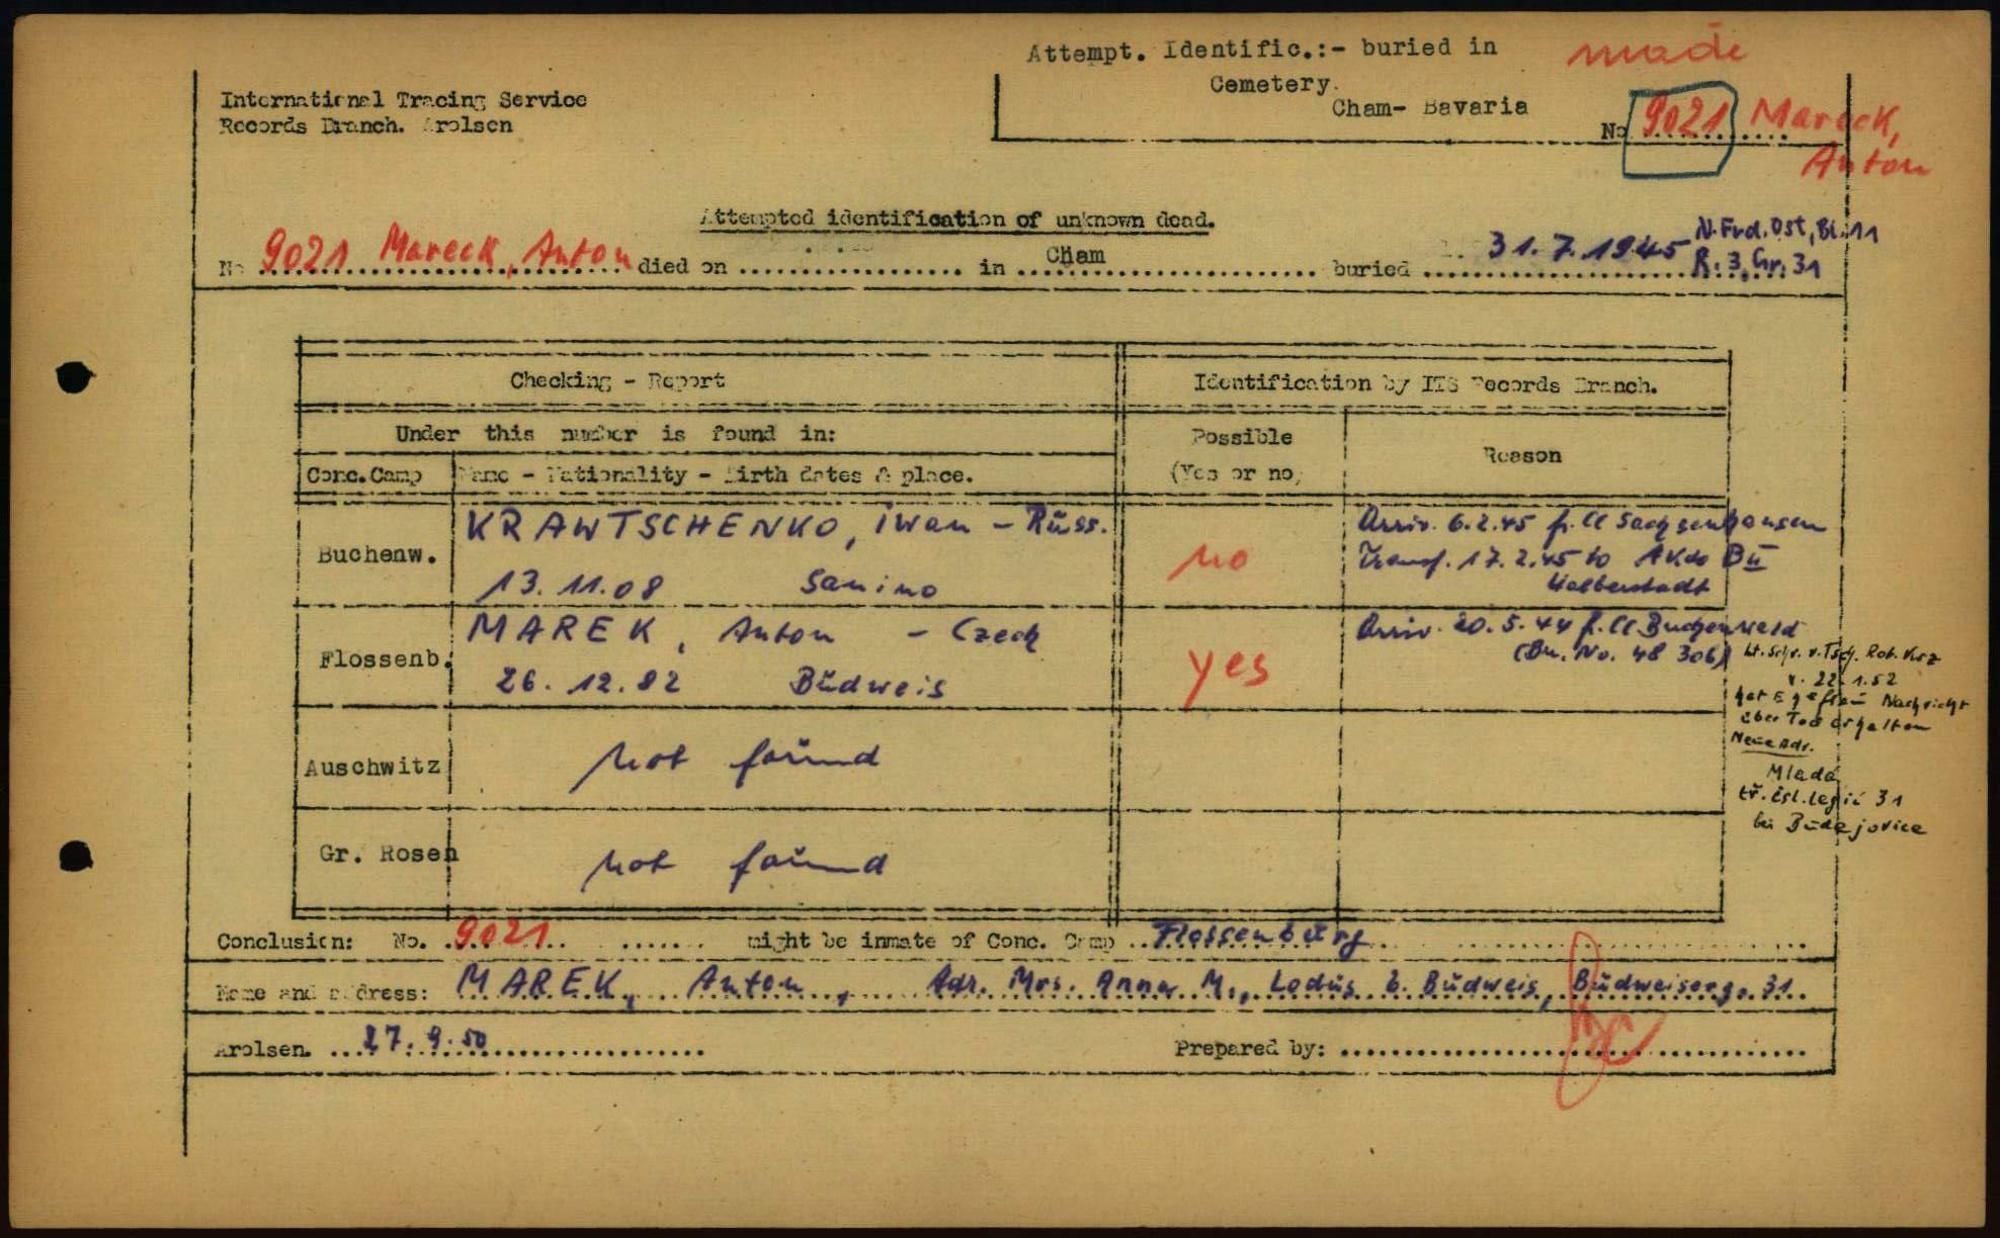 Attempt. Identific.:- buried in made
Cemetery.
Cham- Bavaria
International Tracing Service
Records Branch. Arolsen
No 9021 Mareck,
Anton
Attempted identification of unknown dead.
No 9021 Mareck, Anton died on .................. in Cham buried 31.7.1945 N.Frd.Ost, Bl.11
R. 3, Gr. 31
Checking - Report
Identification by ITS Records Branch.
Under this number is found in:
Possible
(Yes or no)
Reason
Conc.Camp Name - Nationality - Birth dates & place.
Buchenw. KRAWTSCHENKO, Iwan - Russ.
13.11.08 Sanino
no
Arriv. 6.2.45 fr. CC Sachsenhausen
Transf. 17.2.45 to AKdo B II
Halberstadt
Flossenb. MAREK, Anton - Czech
26.12.82 Budweis
yes
Arriv. 20.5.44 fr. CC Buchenwald
(Bu. No. 48 306)
lt. Schr. v. Tsch. Rot. Krz
v. 22.1.52
hat Ehefrau Nachricht
über Tod erhalten
Neue Adr.
Mladá
tř. čsl. legií 31
bei Budějovice
Auschwitz not found
Gr. Rosen not found
Conclusion: No. 9021 might be inmate of Conc. Camp Flossenburg
Name and address: MAREK, Anton, Adr. Mrs. Anna M., Ledus b. Budweis, Budweiserg. 31
Arolsen. 27.9.50 Prepared by: